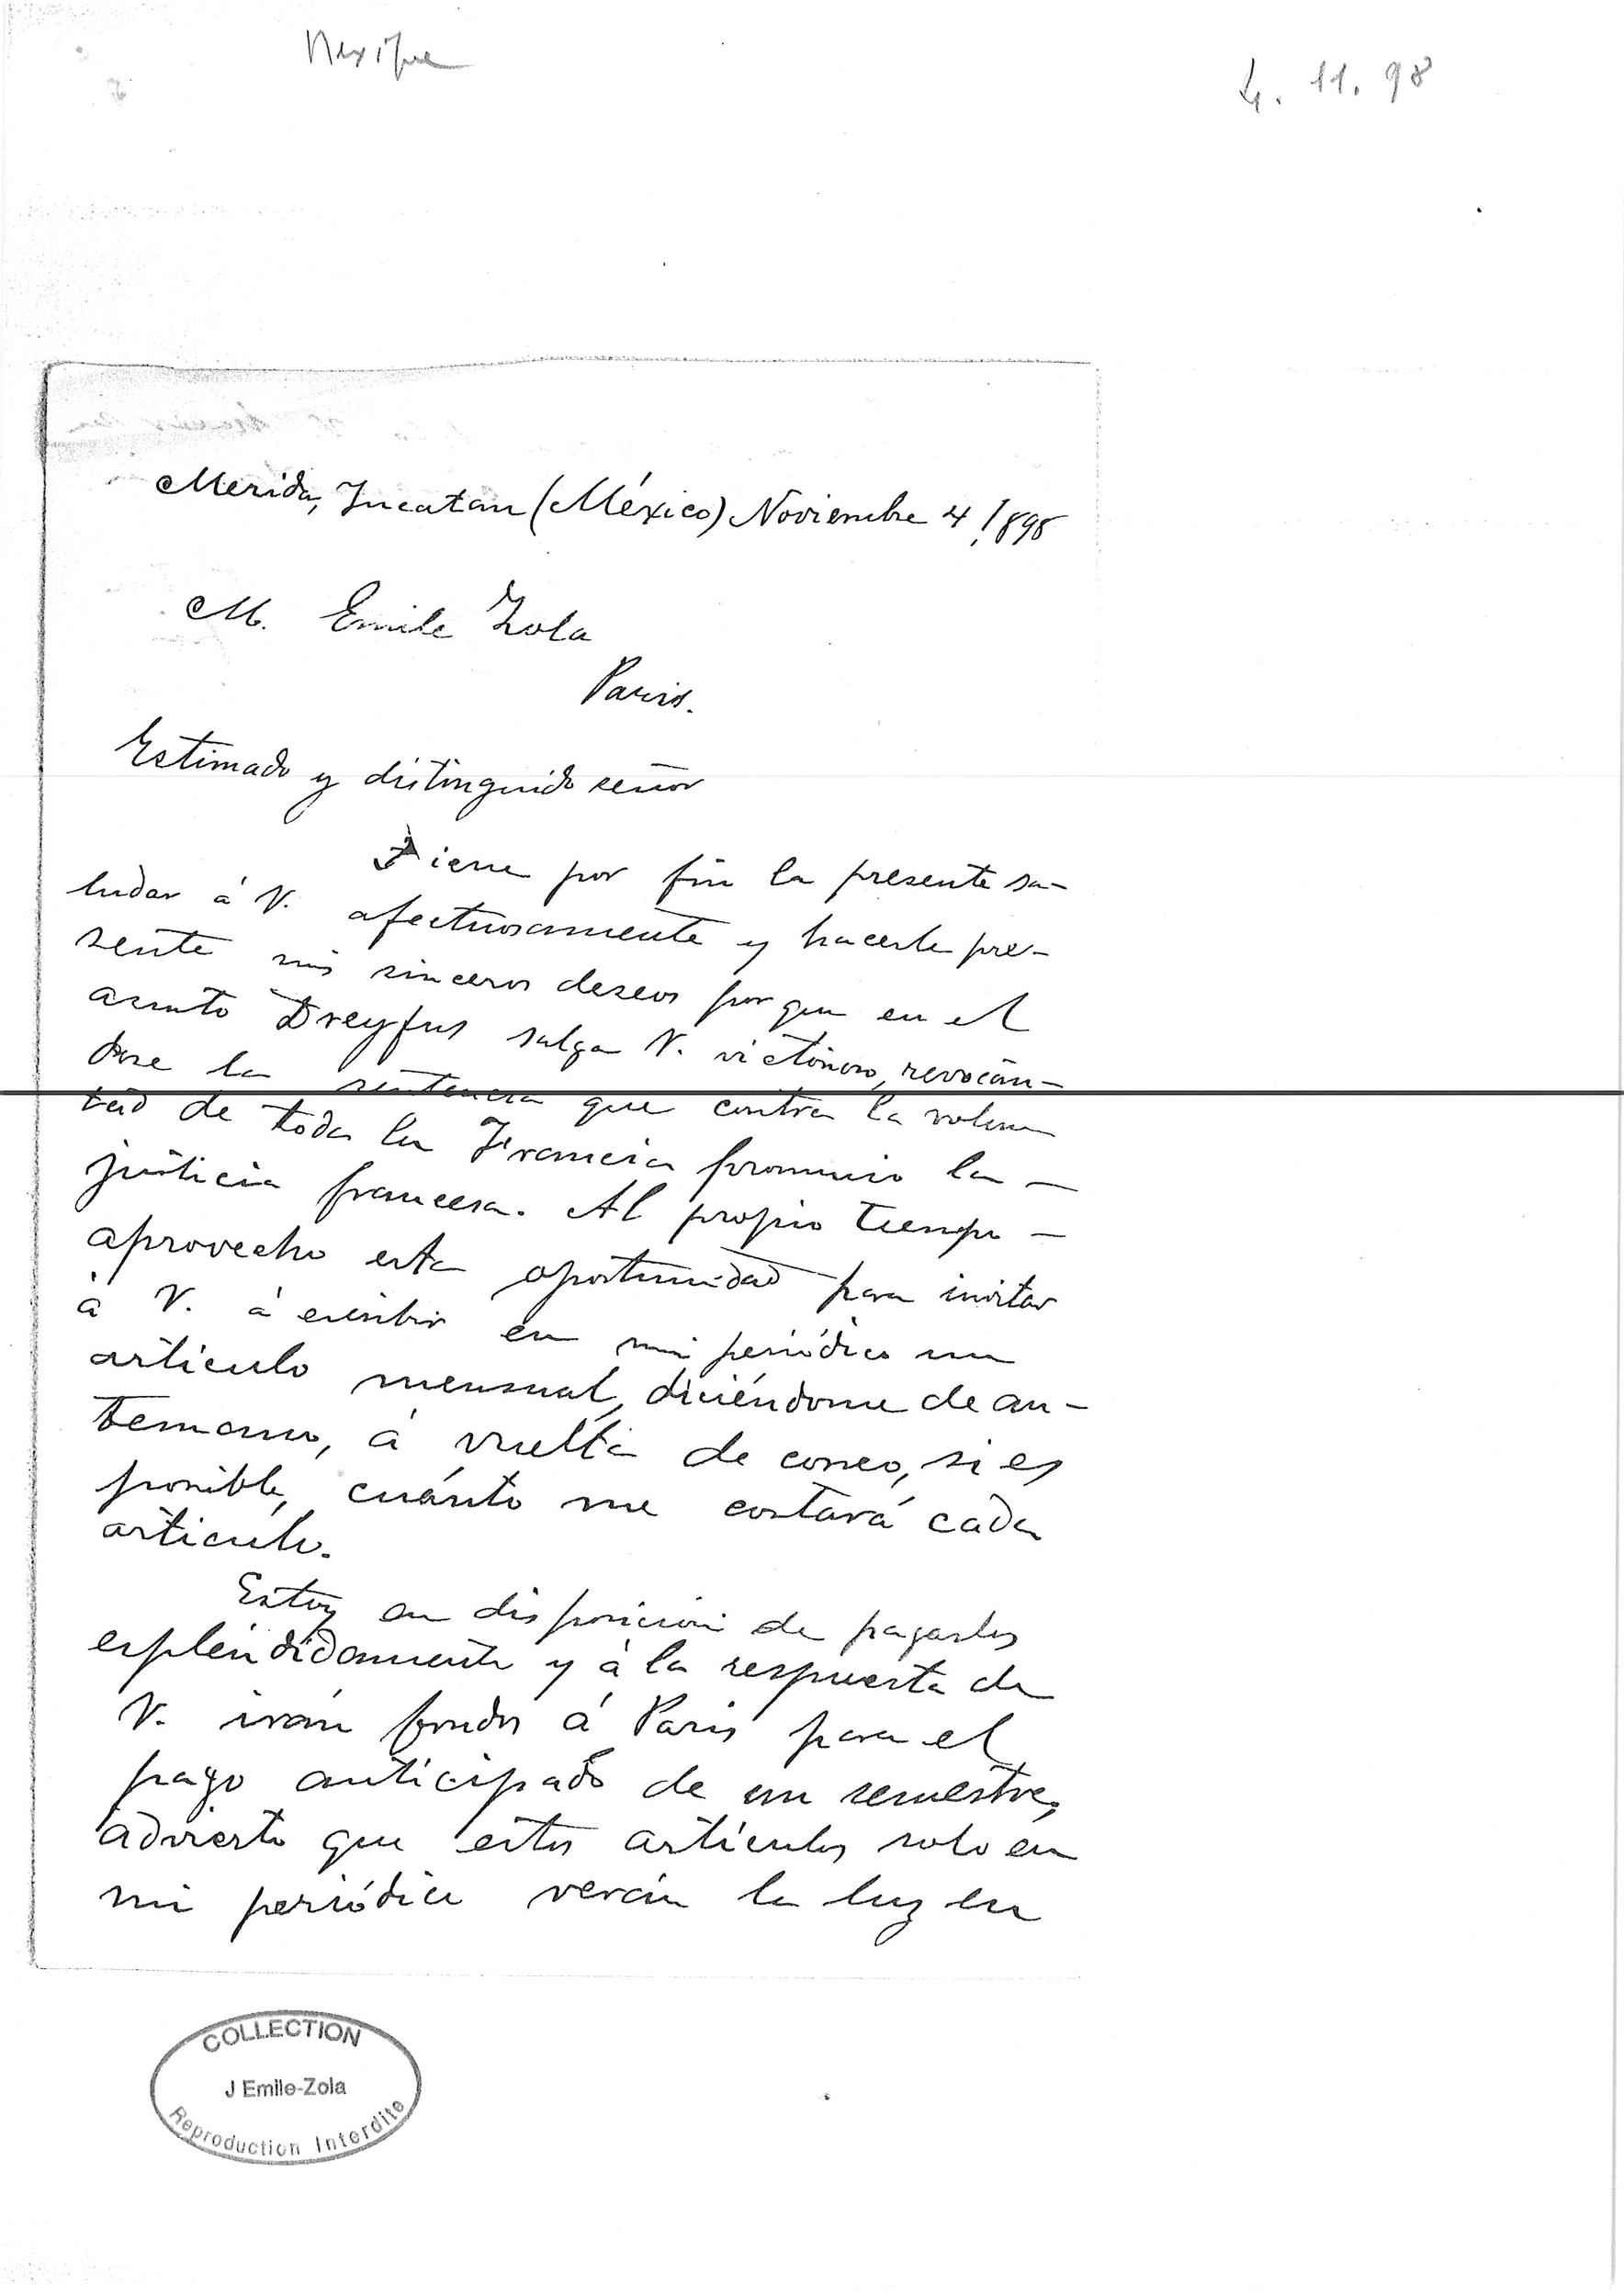 Mexique
4. 11. 98
Merida, Yucatan (México) Noviembre 4/1898
M. Emile Zola
Paris.
Estimado y distinguido señor
Tiene por fin la presente sa-
ludar á V. afectuosamente y hacerle pre-
sente mis sinceros deseos por que en el
asunto Dreyfus salga V. victorioso, revocán-
dose la sentencia que contra la volun
tad de toda la Francia pronunció la -
justicia francesa. Al propio tiempo -
aprovecho esta oportunidad para invitar
á V. á escribir en mi periódico un
artículo mensual, diciéndome de an-
temano, á vuelta de correo, si es
posible, cuánto me costará cada
artículo.
Estoy en disposición de pagarles
espléndidamente y á la respuesta de
V. irán fondos á Paris para el
pago anticipado de un semestre;
advierto que estos artículos solo en
mi periódico verán la luz en
COLLECTION
J Emile-Zola
Reproduction Interdite